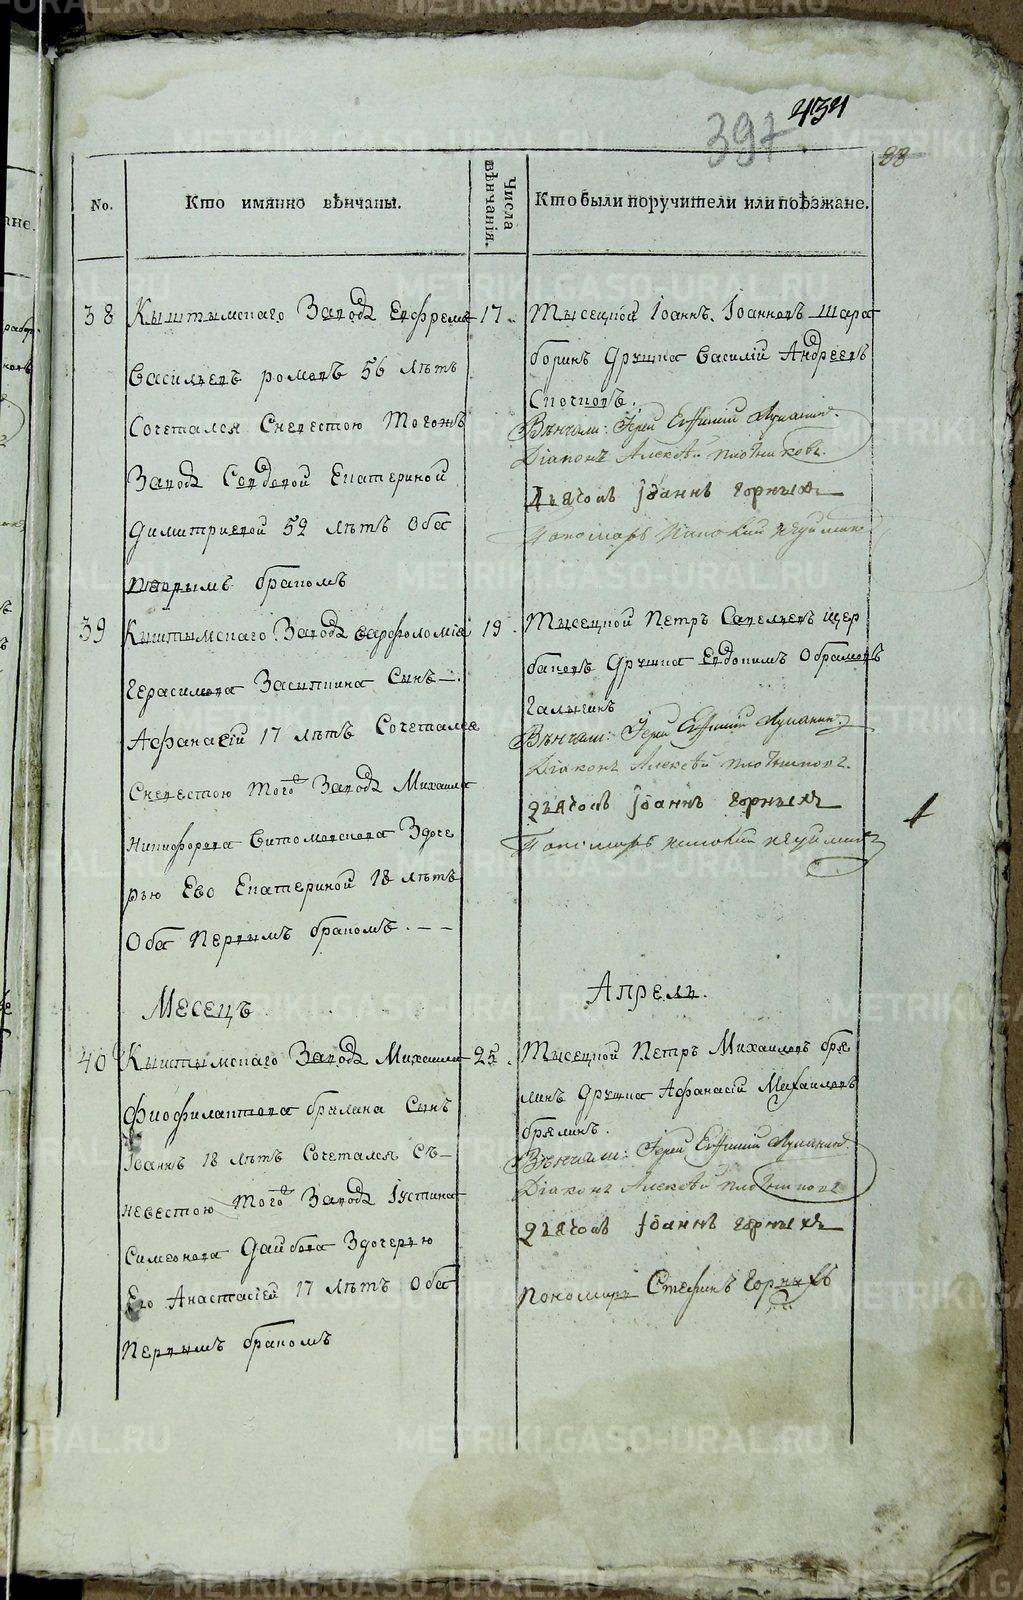 397
434
88
No.
Кто имянно вѣнчаны.
Числа вѣнчанія.
Кто были поручители или поѣзжане.
38
Кыштымскаго Завода Евфремъ
Васильевъ 56 лѣтъ
Сочетался Сневестою тогожъ
Завода Екатериной
Димитриевой 52 лѣтъ Оба
Первымъ бракомъ
17.
Тысецкой Іоаннъ Іоанновъ Шара
боринъ Дружка Василій Андреевъ
Вѣнчали: Іерей Евѳимій
Діаконъ Алексѣй Плотниковъ.
Дьячокъ Іоаннъ Горныхъ
Пономарь
39
Кыштымскаго Завода Варфоломія
Герасимова Засыпкина Сынъ
Афанасій 17 лѣтъ Сочетался
Сневестою того Завода Михаила
Никифорова Витомскова Здоче
рью Ево Екатериной 18 лѣтъ
Оба Первымъ бракомъ.
19.
Тысецкой Петръ Савельевъ Щер
баковъ Дружка Евдокимъ Обрамовъ
Галыгинъ
Вѣнчали: Іерей Евѳимій
Діаконъ Алексѣй Плотниковъ.
Дьячокъ Іоаннъ Горныхъ
Пономарь
Месецъ
Апрель.
40
Кыштымскаго Завода Михаила
Фиофилактова брялина Сынъ
Іоаннъ 18 лѣтъ Сочетался Съ
невестою того Завода Іустина
Симеонова Здочерью
Его Анастасіей 17 лѣтъ Оба
Первымъ бракомъ
25.
Тысецкой Петръ Михаиловъ бря
линъ Дружка Афанасій Михаиловъ
брялинъ.
Вѣнчали: Іерей Евѳимій
Діаконъ Алексѣй Плотниковъ
Дьячокъ Іоаннъ Горныхъ
Пономарь Стефанъ Горныхъ
METRIKI.GASO-URAL.RU